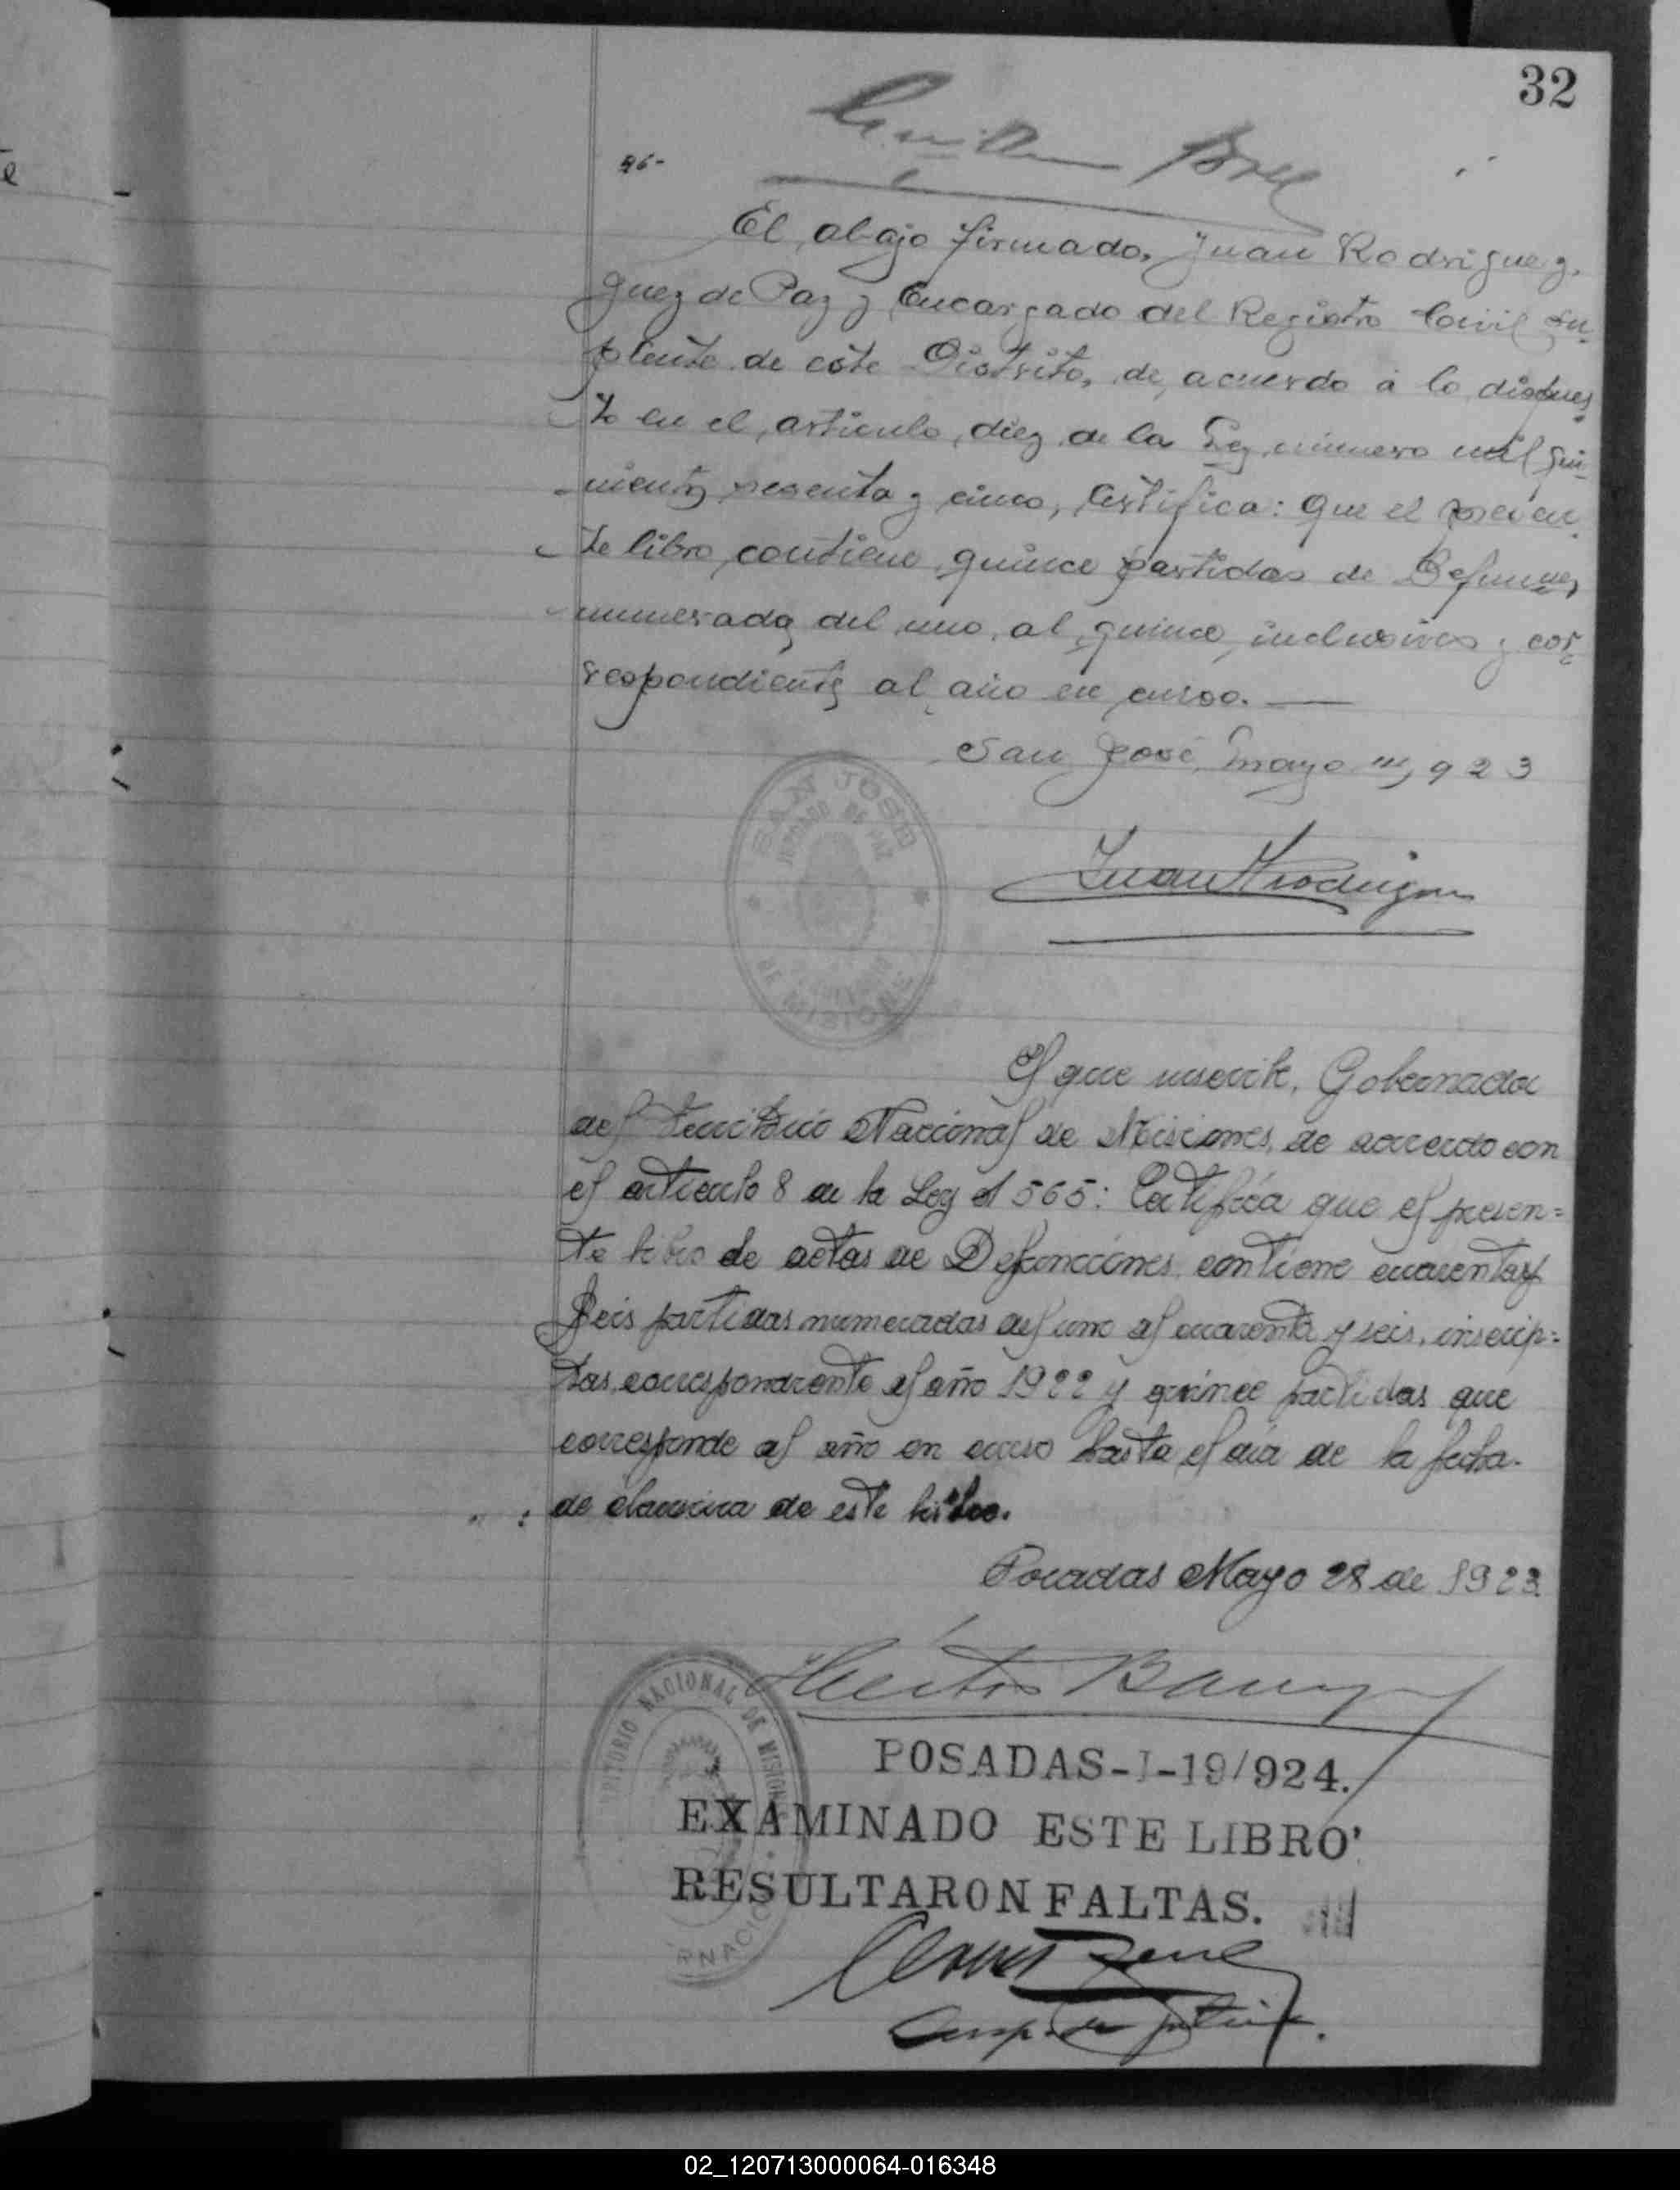 32
El abajo firmado, Juan Rodriguez,
Juez de Paz y Encargado del Registro Civil Su-
plente de este Distrito, de acuerdo á lo dispues-
to en el articulo diez de la Ley número mil qui-
nientos sesenta y cinco, Certifica: Que el presen-
te libro contiene quince partidas de Defunciones,
numeradas del uno al quince inclusives y cor-
respondientes al año en curso.
San José, Mayo 923
Juan Rodriguez
SAN JOSE
JUZGADO DE PAZ
DE MISIONES
El que suscribe, Gobernador
del Territorio Nacional de Misiones, de acuerdo con
el articulo 8 de la Ley 1565: Certifica que el presen=
te libro de actas de Defunciones contiene cuarenta y
Seis partidas numeradas del uno al cuarenta y seis, inscrip=
tas correspondiente al año 1922 y quince partidas que
corresponde al año en curso hasta el dia de la fecha
de clausura de este libro.
Posadas Mayo 28 de 1923.
TERRITORIO NACIONAL DE MISIONES
POSADAS-I-19/924.
EXAMINADO ESTE LIBRO
RESULTARON FALTAS.
02_120713000064-016348